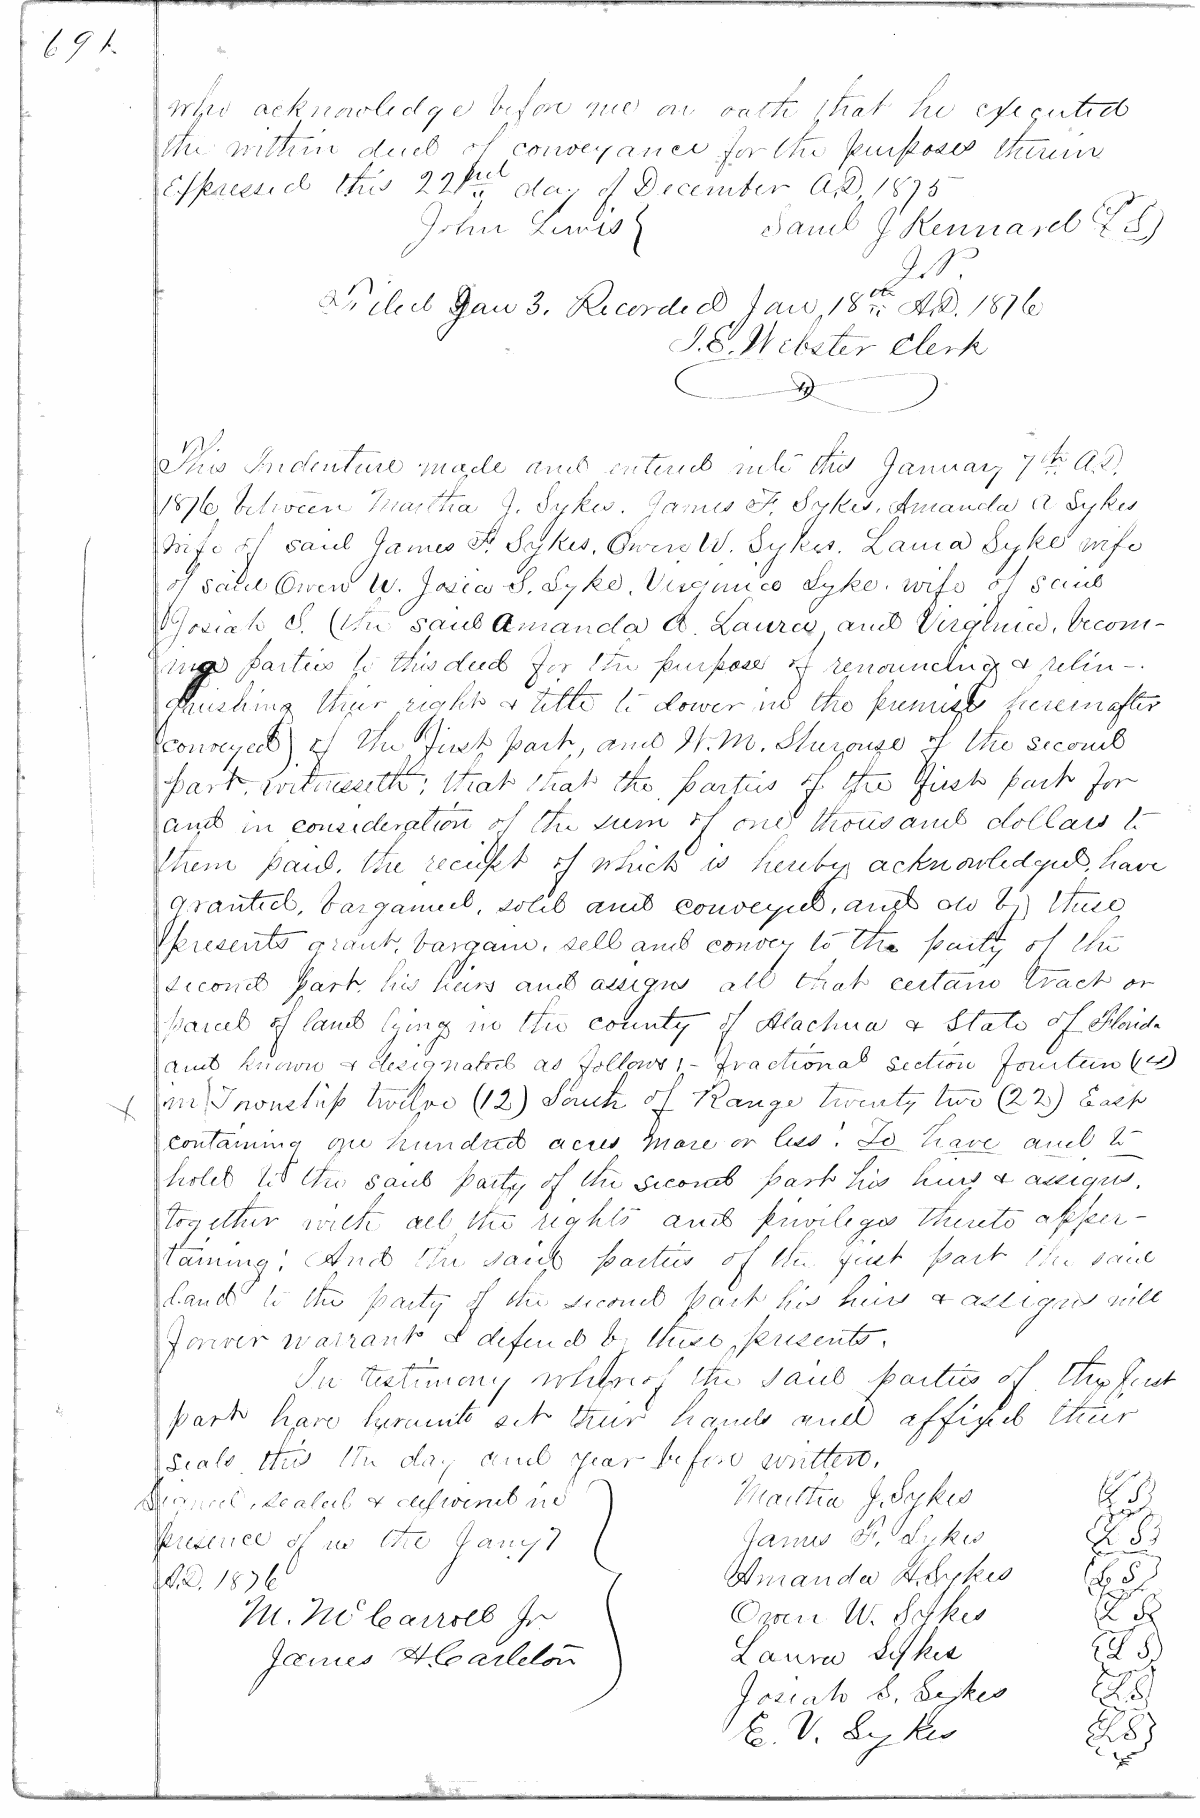 691.
who acknowledge before me on oath that he executed
the within deed of conveyance for the purposes therein
Expressed this 22nd day of December A.D. 1875
John Lewis } Saml J Kennard (L S)
J.P.
Filed Jan 3. Recorded Jan 18th A.D. 1876
J. E. Webster Clerk
This Indenture made and entered into this January 7th A.D.
1876 between Martha J. Sykes. James F. Sykes. Amanda A Sykes
wife of said James F. Sykes. Owen W. Sykes. Laura Syke wife
of said Owen W. Josia S. Syke. Virginia Syke. wife of said
Josiah S. (the said Amanda A. Laura, and Virginia, becom-
ing parties to this deed for the purpose of renouncing & relin-
quishing their right & title to dower in the premises hereinafter
conveyed) of the first part, and H. M. Sherouse of the second
part. witnesseth; that that the parties of the first part for
and in consideration of the sum of one thousand dollars to
them paid. the receipt of which is hereby acknowledged, have
granted, bargained, sold and conveyed, and do by these
presents grant, bargain, sell and convey to the party of the
second part his heirs and assigns all that certain tract or
parcel of land lying in the county of Alachua & State of Florida
and known & designated as follows; - fractional section fourteen (14)
x in Township twelve (12) South of Range twenty two (22) East
containing one hundred acres more or less: To have and to
hold to the said party of the second part his heirs & assigns,
together with all the rights and privileges thereto apper-
taining: And the said parties of the first part the said
Land to the party of the second part his heirs & assigns will
forever warrant & defend by these presents.
In testimony whereof the said parties of the first
part have hereunto set their hands and affixed their
seals this the day and year before written.
Signed, sealed & delivered in } Martha J. Sykes (L S)
presence of us the Jany 7 James F. Sykes (L S)
A.D. 1876 Amanda A. Sykes (L S)
M. McCarroll Jr Owen W. Sykes (L S)
James H. Carleton Laura Sykes (L S)
Josiah S. Sykes (L S)
E. V. Sykes (L S)